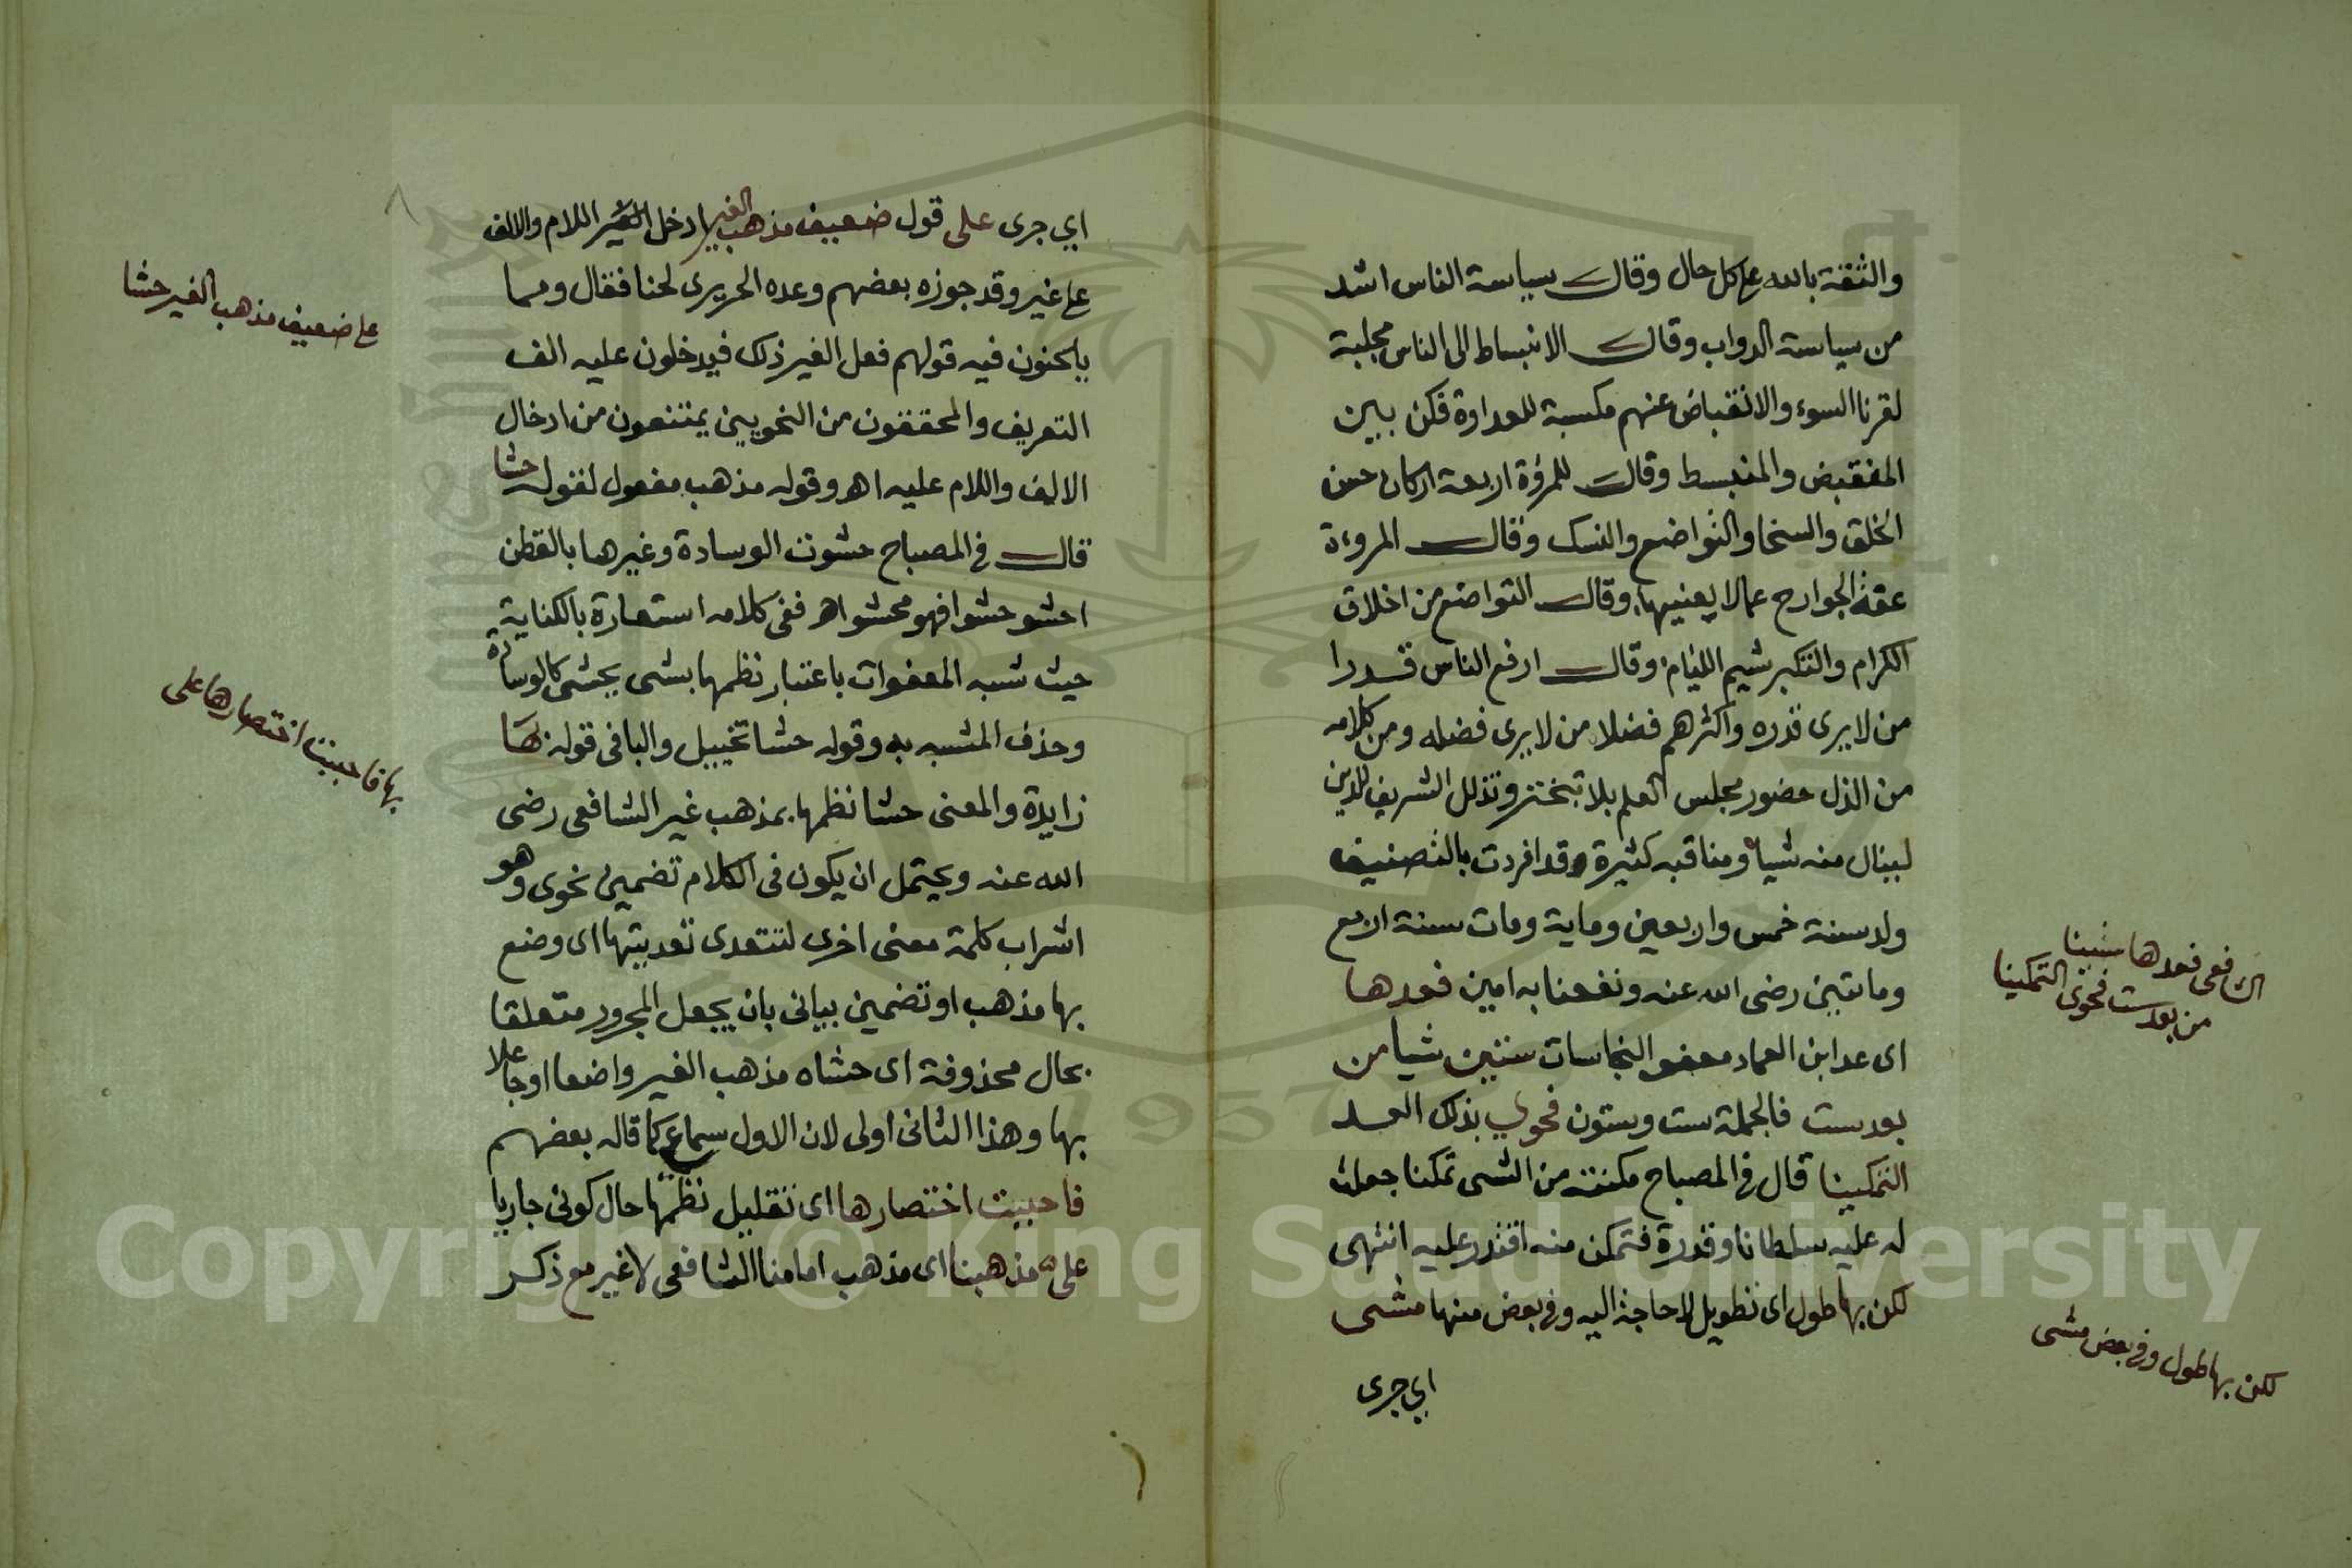 والثقة بالله علي كل حال وقال سياسة الناس اشد
من سياسة الدواب وقال الانبساط الى الناس مجلبة
لقرنا السوء والانقباض عنهم مكسبة للعداوة فكن بين
المنقبض والمنبسط وقال للمرؤة اربعة اركان حسن
الخلق والسخا والتواضع والنسك وقال المروءة
عفة الجوارح عمالا يعنيها وقال التواضع من اخلاق
الكرام والتكبر شيم الليام وقال ارفع الناس قدرا
من لا يرى قدره واكثرهم فضلا من لا يرى فضله ومن كلامه
من الذل حضور مجلس العلم بلا تبختر وتذلل الشريف للدين
لينال منه شيا ومناقبه كثيرة وقد افردت بالتصنيف
ولد سنة خمس واربعين وماية ومات سنة اربع
ومايتين رضى الله عنه ونفعنا به امين فعدها
اى عد ابن العماد معفو النجاسات ستين شيا من
بعد ست فالجملة ست وستون فحوي بذلك العد
التمكينا قال في المصباح مكنته من الشى تمكنا جعلت
له عليه سلطانا وقدرة فتمكن منه اقتدر عليه انتهى
لكن بها طول اى تطويل لا حاجة اليه وفي بعض منها مشى
اي جرى
الشافعى فعدها ستينا
من بعد ست فحوى التمكينا
لكن بها طول وفي بعض مشى
اي جرى على قول ضعيف مذهب الغير ادخل الغير اللام والالف
علي غير وقد جوزه بعضهم وعده الحريرى لحنا فقال ومما
يلحنون فيه قولهم فعل الغير ذلك فيدخلون عليه الف
التعريف والمحققون من النحويين يمتنعون من ادخال
الالف واللام عليه اهـ وقوله مذهب مفعول لقوله حشا
قال في المصباح حشوت الوسادة وغيرها بالقطن
احشو حشوا فهو محشو اهـ ففى كلامه استعارة بالكناية
حيث شبه المعفوات باعتبار نظمها بشى يحشى كالوسادة
وحذف المشبه به وقوله حشا تخييل والبا فى قوله بها
زايدة والمعنى حشا نظمها بمذهب غير الشافعى رضى
الله عنه ويحتمل ان يكون فى الكلام تضمين نحوى وهو
اشراب كلمة معنى اخرى لتتعدى تعديتها اى وضع
بها مذهب او تضمين بيانى بان يجعل المجرور متعلقا
بحال محذوفة اى حشاه مذهب الغير واضعا او جاعلا
بها وهذا الثانى اولى لان الاول سماعي كما قاله بعضهم
فاحببت اختصارها اى تقليل نظمها حال كونى جاريا
على مذهبنا اى مذهب امامنا الشافعى لا غير مع ذكر
علي ضعيف مذهب الغير حشا
بها فاحببت اختصارها على
Copyright © King Saud University
1957